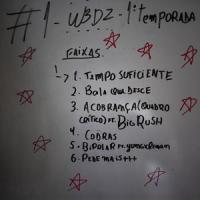 #1 - WBDZ - 1ª TEMPORADA
FAIXAS:
1. TEMPO SUFICIENTE
2. BOLA QUE DESCE
3. A COBRANÇA (QUADRO
CRÍTICO) FT. BIG RUSH
4. COBRAS
5. BIPOLAR FT.
6. PEDE MAIS +++